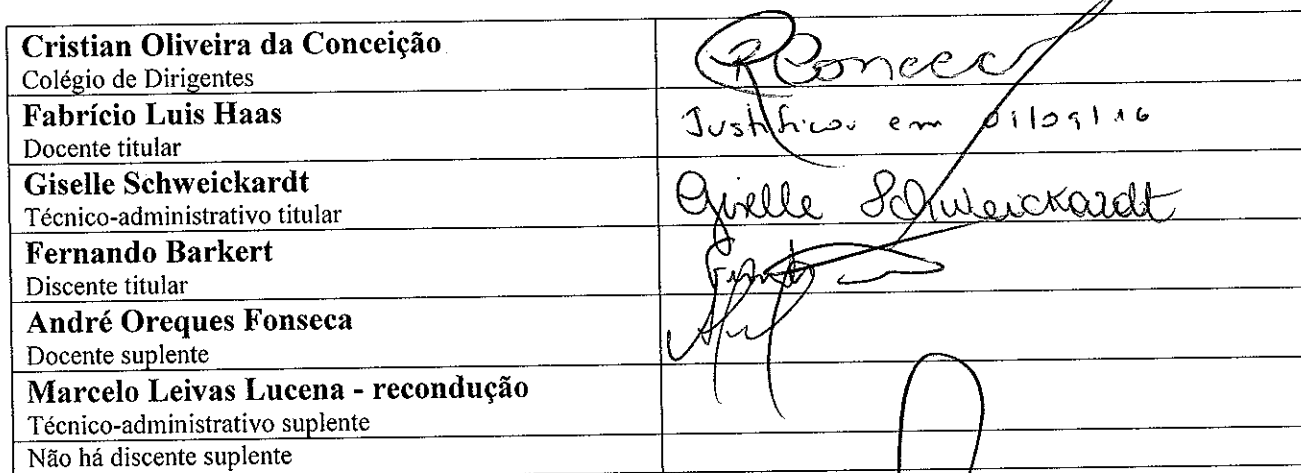 Cristian Oliveira da Conceição
Colégio de Dirigentes
Fabrício Luis Haas
Justificou em 01/09/16
Docente titular
Giselle Schweickardt
Giselle Schweickardt
Técnico-administrativo titular
Fernando Barkert
Discente titular
André Oreques Fonseca
Docente suplente
Marcelo Leivas Lucena - recondução
Técnico-administrativo suplente
Não há discente suplente